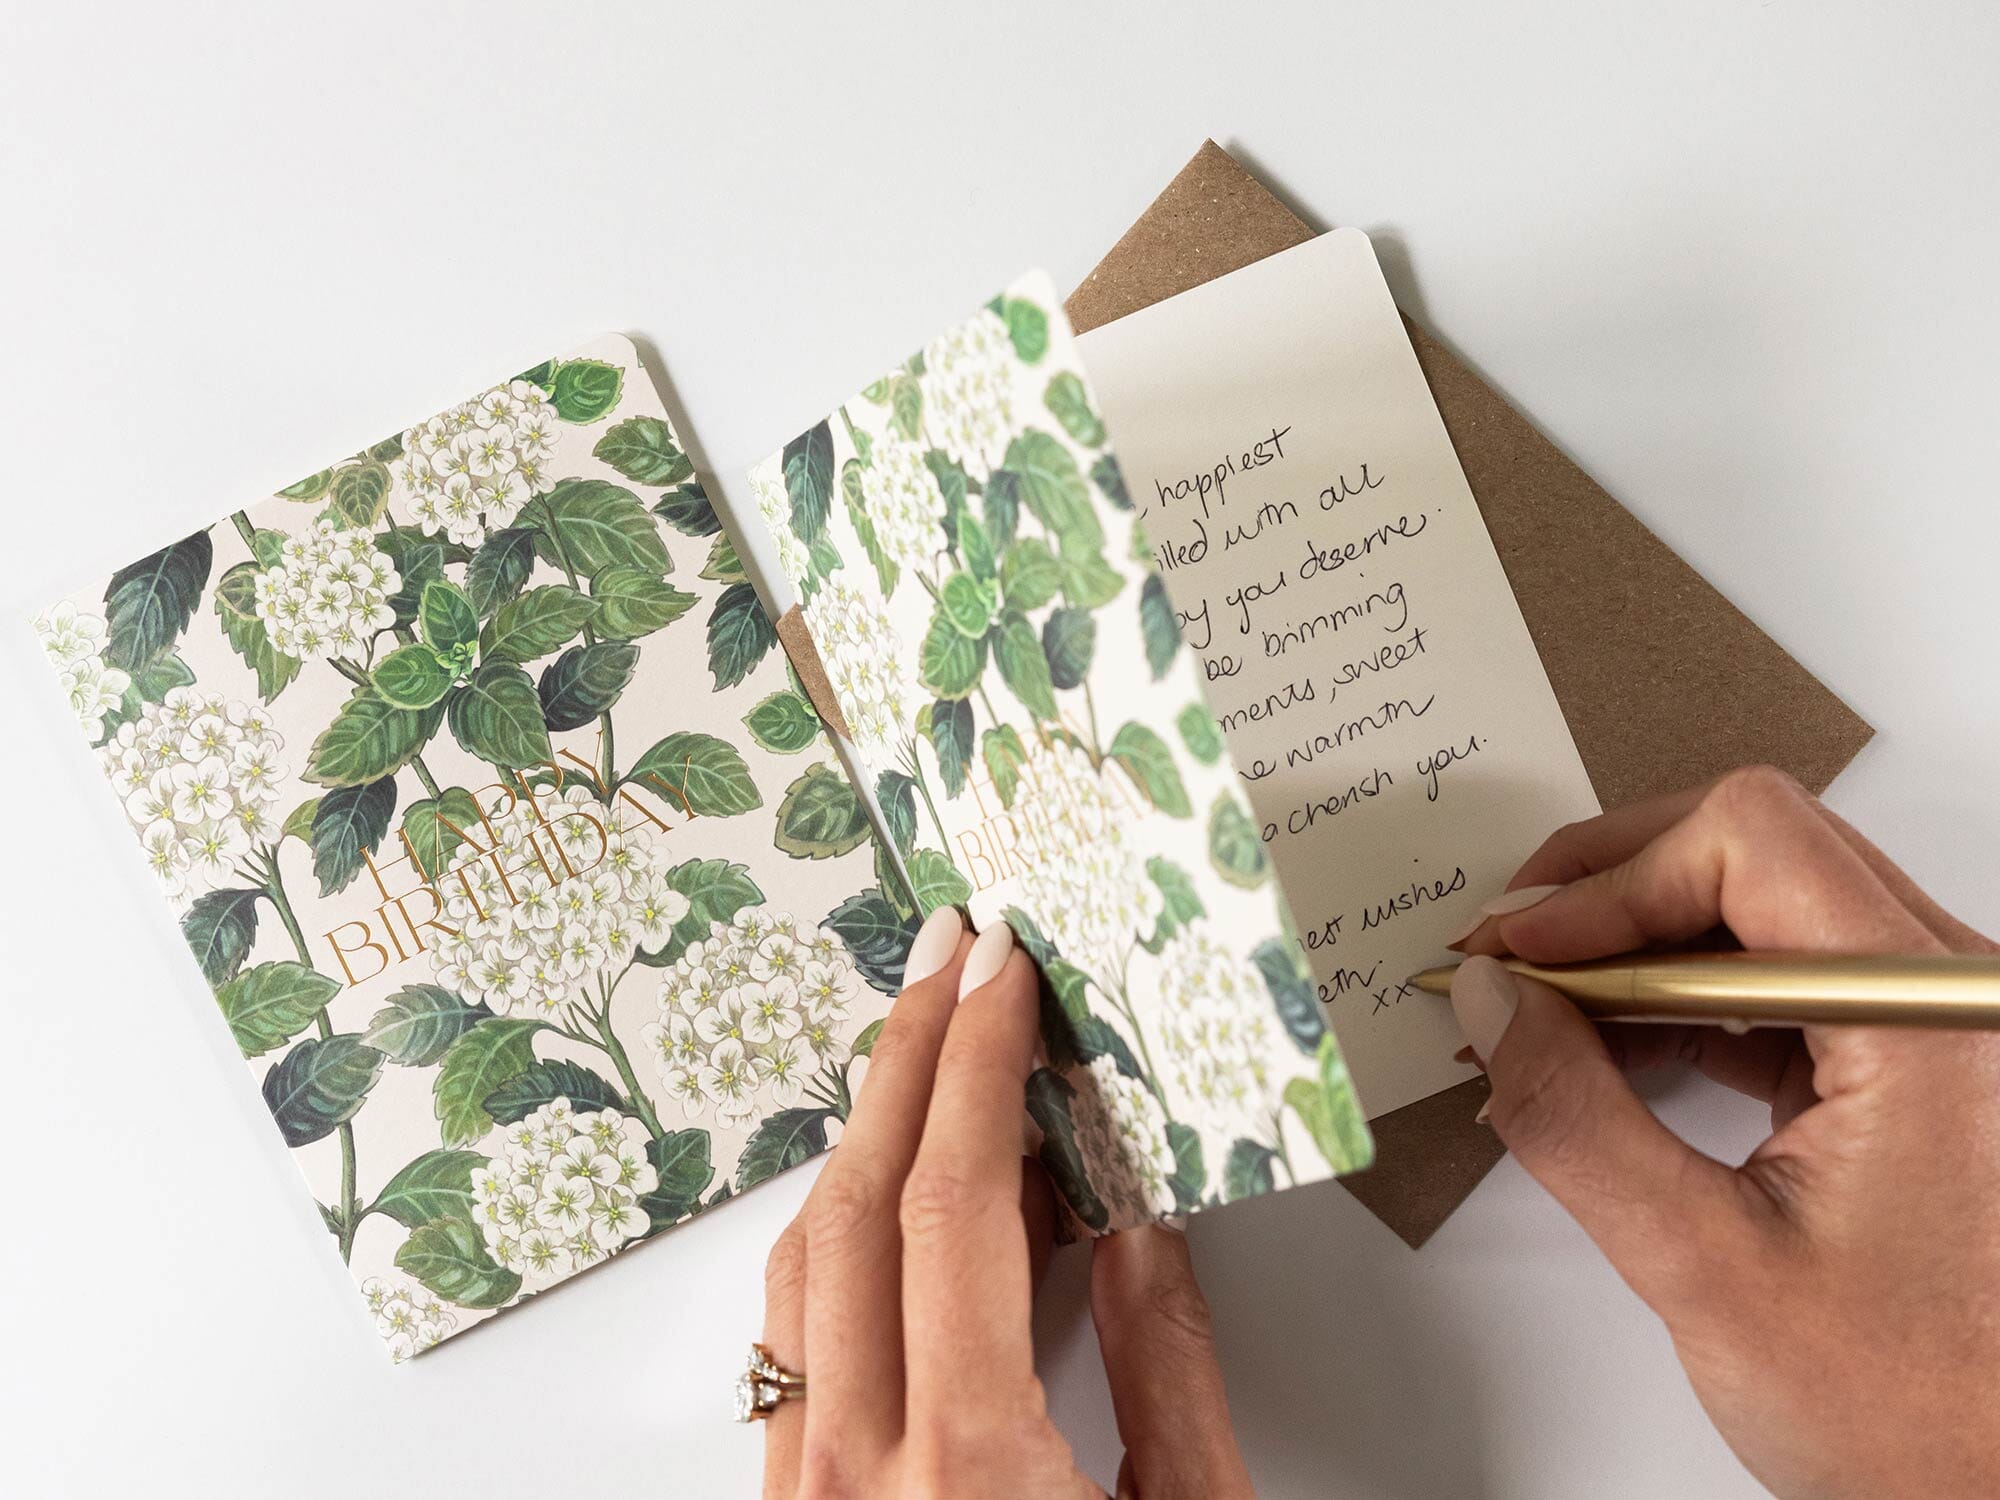 HAPPY
BIRTHDAY
HAPPY
BIRTHDAY
happiest
illed with all
oy you deserve.
be brimming
oments, sweet
he warmth
cherish you.
est wishes
eth.
xx